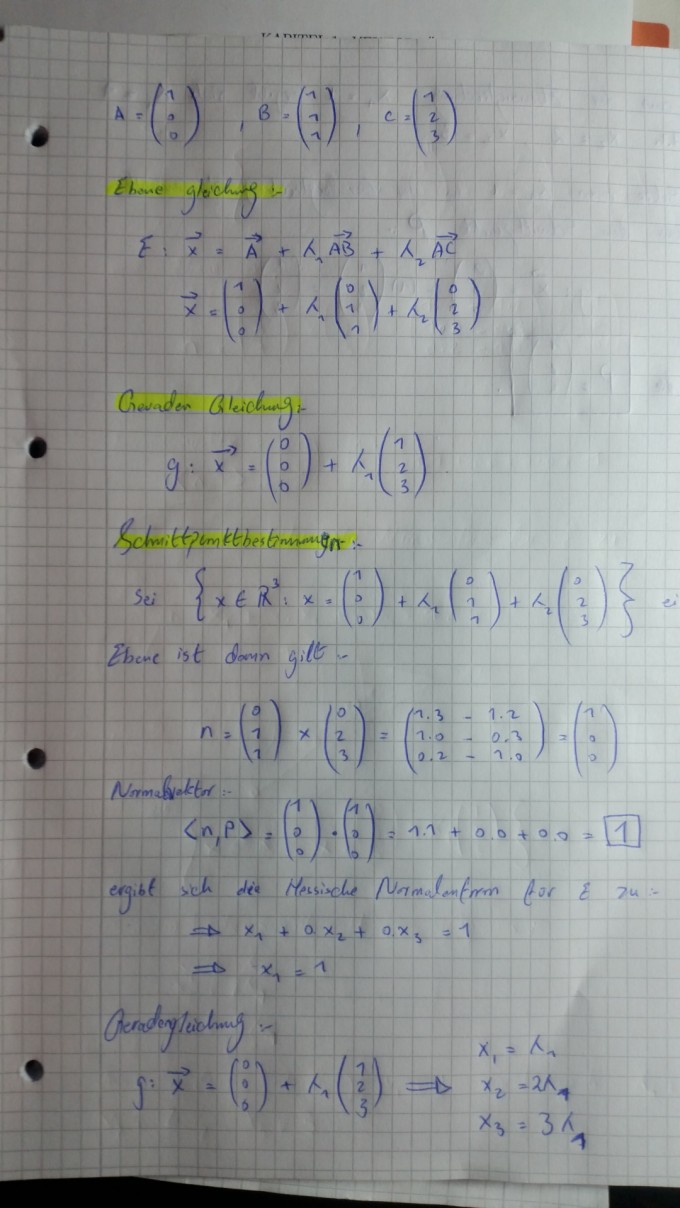 A = (1 0 0) , B = (1 1 1) , C = (1 2 3)
Ebene gleichung :-
E : x⃗ = A⃗ + λ₁ AB⃗ + λ₂ AC⃗
x⃗ = (1 0 0) + λ₁ (0 1 1) + λ₂ (0 2 3)
Geraden Gleichung :-
g : x⃗ = (0 0 0) + λ₁ (1 2 3)
Schnittpunktbestimmung :-
Sei { x ∈ ℝ³ : x = (1 0 0) + λ₁ (0 1 1) + λ₂ (0 2 3) } ei
Ebene ist dann gilt :-
n = (0 1 1) × (0 2 3) = (1.3 - 1.2 1.0 - 0.3 0.2 - 1.0) = (1 0 0)
Normalvektor :-
⟨n,P⟩ = (1 0 0) · (1 0 0) = 1.1 + 0.0 + 0.0 = 1
ergibt sich die Hessische Normalenform für E zu :-
⇒ x₁ + 0.x₂ + 0.x₃ = 1
⇒ x₁ = 1
Geradengleichung :-
g : x⃗ = (0 0 0) + λ₁ (1 2 3) ⇒ x₁ = λ₁
x₂ = 2λ₁
x₃ = 3λ₁